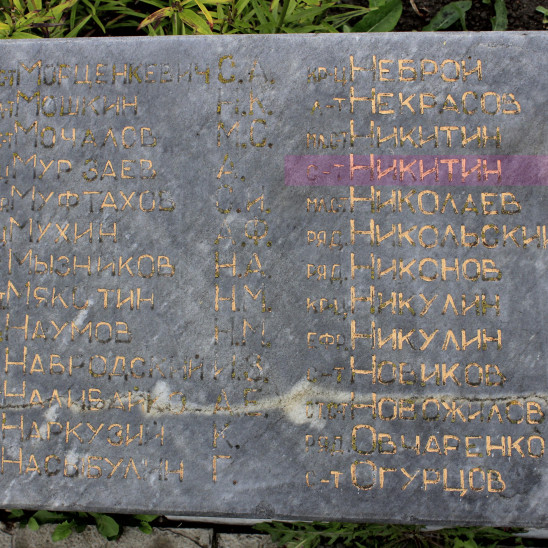 Морценкевич С.А.
Мошкин И.К.
Мочалов М.С.
Мурзаев А.
Муфтахов С.И.
Мухин А.Ф.
Мызников Н.А.
Мякотин Н.М.
Наумов Н.М.
Набродский И.З.
Наливайко А.Е.
Наркузин К.
Насыбулин Г.
крц. Неврой
л-т Некрасов
мл.с-т Никитин
с-т Никитин
мл.с-т Николаев
ряд. Никольский
ряд. Никонов
крц. Никулин
ефр. Никулин
с-т Новиков
Новожилов
ряд. Овчаренко
с-т Огурцов